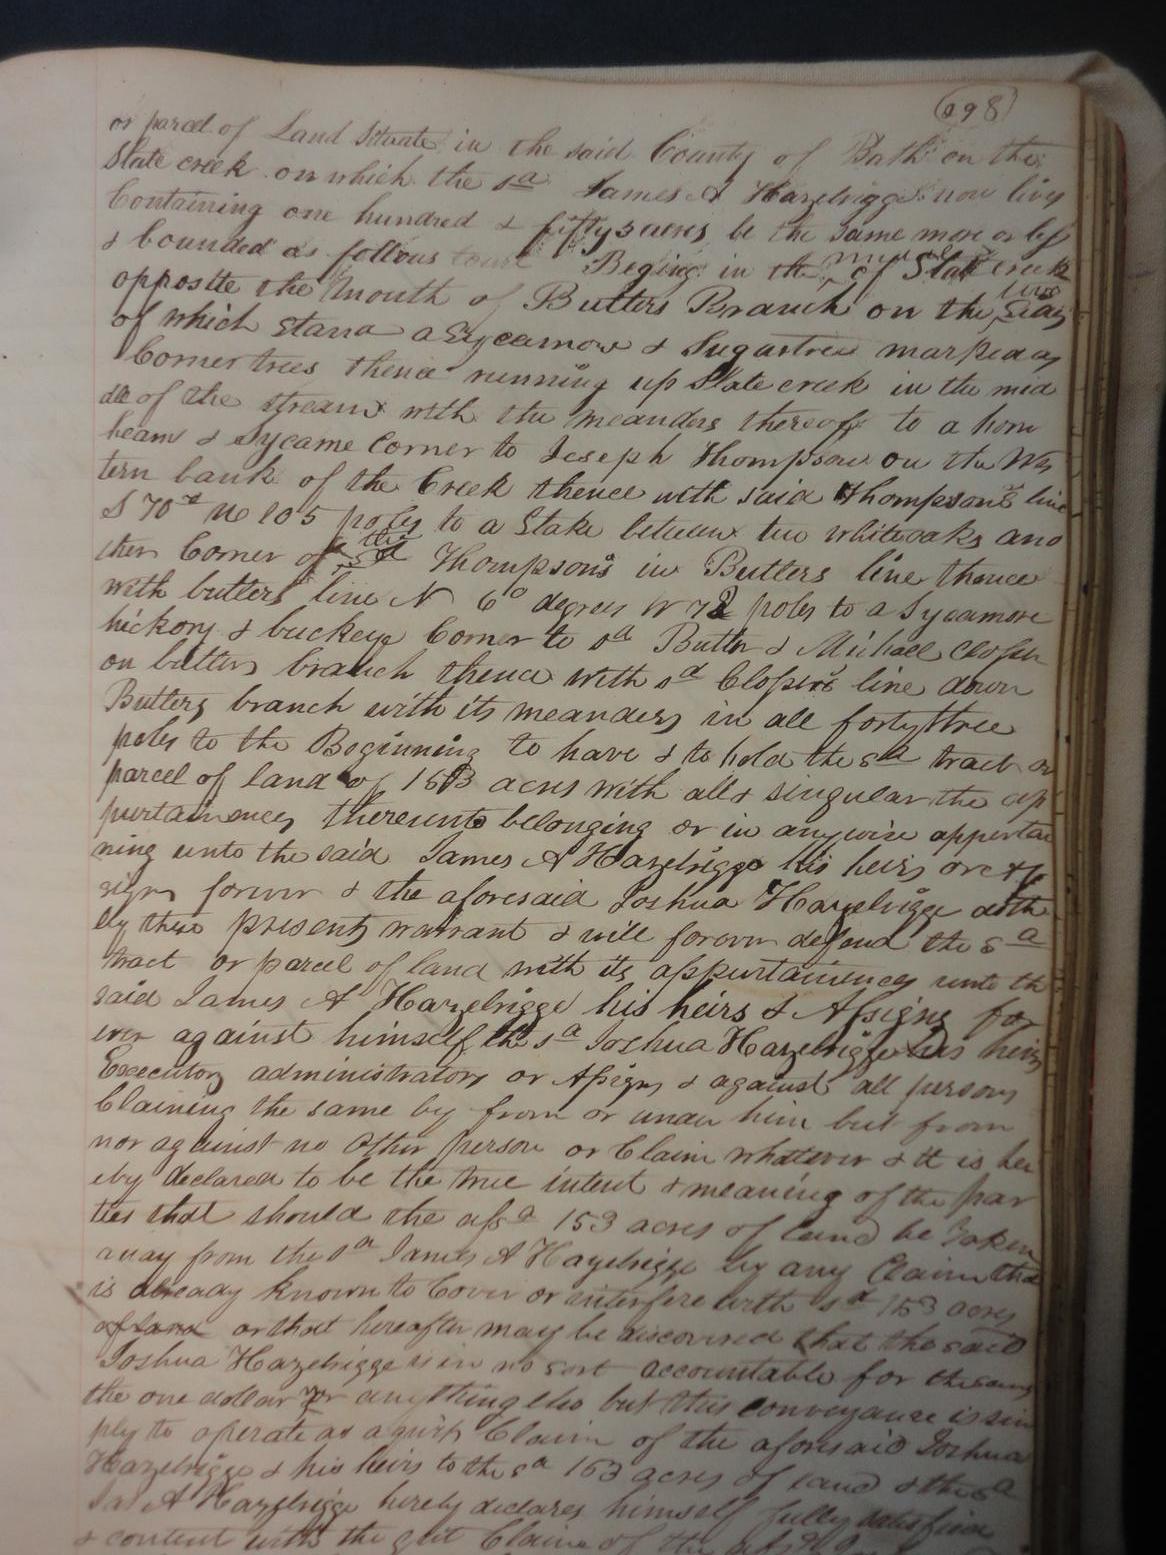 698
or parcel of Land Situate in the said County of Bath on the
Slate creek on which the sd James A Hazelrigge now lives
Containing one hundred & fifty 3 acres be the same more or less
& bounded as follows Beging in the of Slate creek
opposite the Mouth of Butlers Branch on the two
Seas of which stand a Sycamore & Sugartree marked as
Corner trees thence running up Slate creek in the mid
dle of the stream with the meanders thereof to a horn
beam & Sycame Corner to Joseph Thompson on the Wes
tern bank of the Creek thence with said Thompson's line
S 70d W 105 poles to a Stake between two whiteoaks ano
ther Corner of the sd Thompson's in Butlers line thence
with butlers line N 6° degrees W 72 poles to a Sycamore
hickory & buckeye Corner to sd Butler & Michael
on butlers branch thence with sd line down
Butlers branch with its meanders in all fortythree
poles to the Beginning to have & to hold the sd tract or
parcel of land of 153 acres with all & singular the ap
purtainences thereunto belonging or in anywise appertai
ning unto the said James A Hazelrigge his heirs or as
signs forever & the aforesaid Joshua Hazelrigge doth
by these presents warrant & will forever defend the sd
tract or parcel of land with its appurtainences unto the
said James A Hazelrigge his heirs & Assigns for
ever against himself the sd Joshua Hazelrigge his heirs
Executors administrators or Assigns & against all persons
Claiming the same by from or under him but from
nor against no other person or Claim whatever & it is her
eby declared to be the true intent & meaning of the par
ties that should the afsd 153 acres of land be Taken
away from the sd James A Hazelrigge by any Claim that
is already known to Cover or interfere with sd 153 acres
of land or that hereafter may be discovered that the said
Joshua Hazelrigge is in no sort accountable for the same
the one dollar or anything else but this conveyance is sim
ply to operate as a quit Claim of the aforesaid Joshua
Hazelrigge & his heirs to the sd 153 acres of land & the sd
Jas A Hazelrigge hereby declares himself fully satisfied
& content with the quit Claim of the